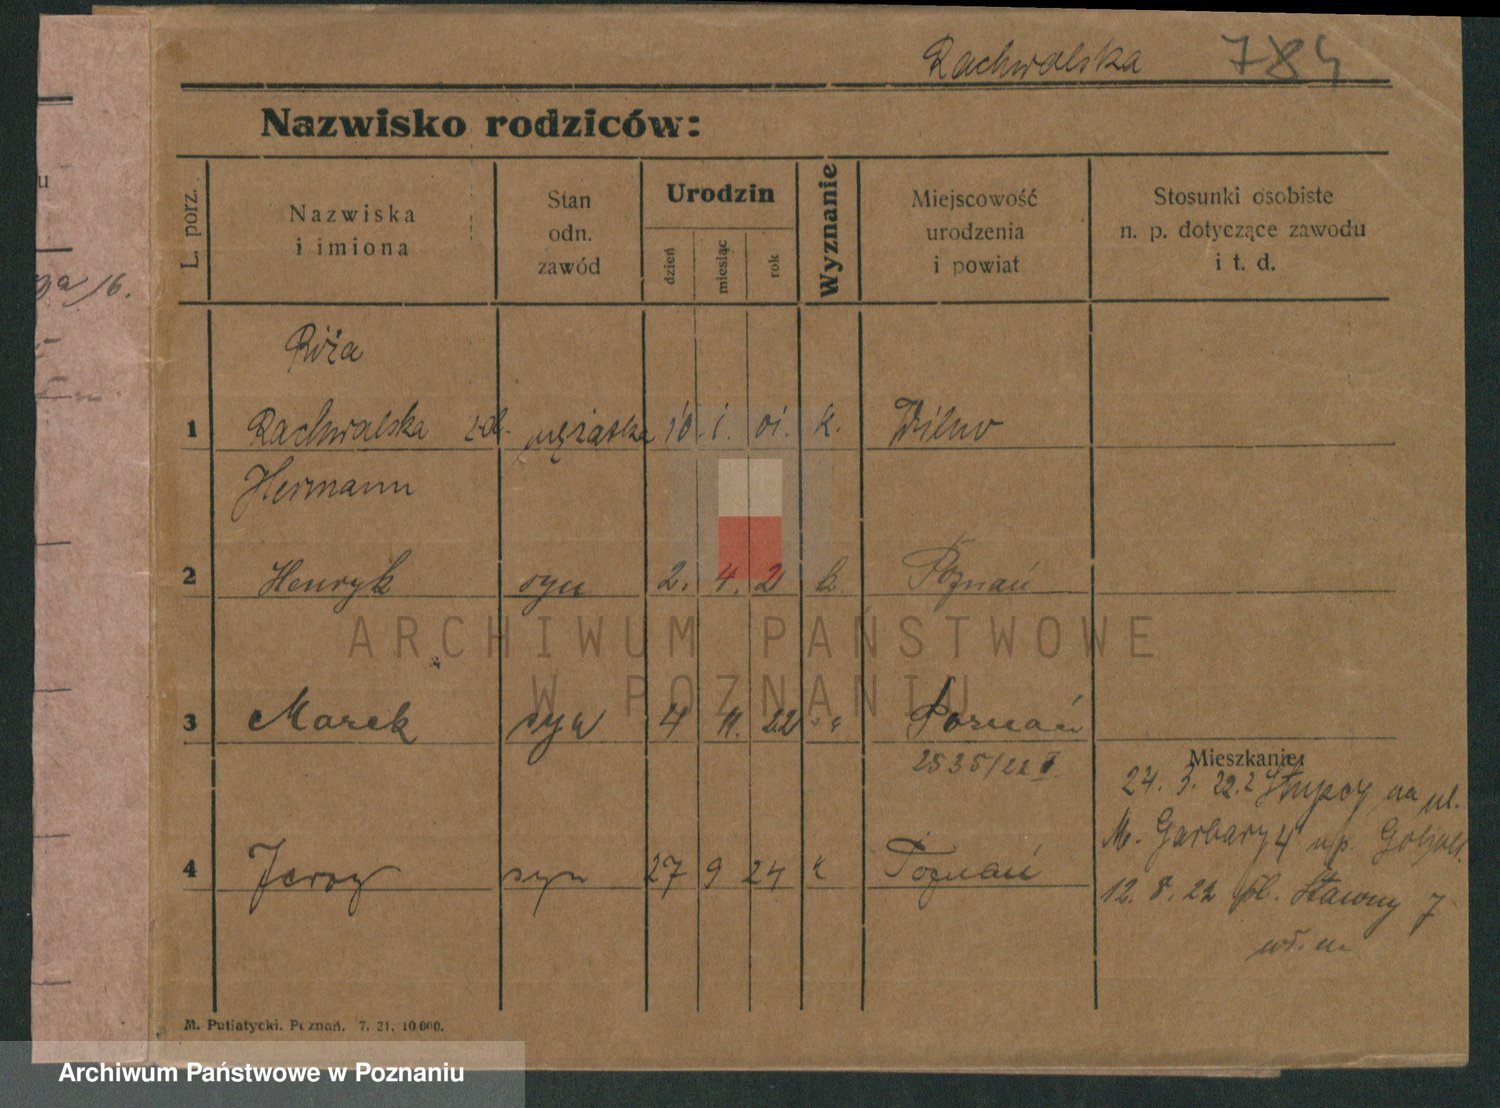 Rachwalska 784
Nazwisko rodziców:
L. porz.
Nazwiska
i imiona
Stan
odn.
zawód
Urodzin
dzień
miesiąc
rok
Wyznanie
Miejscowość
urodzenia
i powiat
Stosunki osobiste
n. p. dotyczące zawodu
i t. d.
u
ga 16.
Róża
1 Rachwalska z d. mężatka 10 1. 01. k. Wilno
Hermann
2 Henryk syn 2. 4. 21 k. Poznań
3 Marek syn 4 11. 22 Poznań
2535/22 I
Mieszkanie:
24. 3. 22. z Słupcy na ul.
M. Garbary 4 u p.
4 Jerzy syn 27 9 24 k Poznań
12. 8. 22 pl. Stawny 7
M. Putiatycki. Poznań. 7. 21. 10 000.
ARCHIWUM PAŃSTWOWE
W POZNANIU
Archiwum Państwowe w Poznaniu